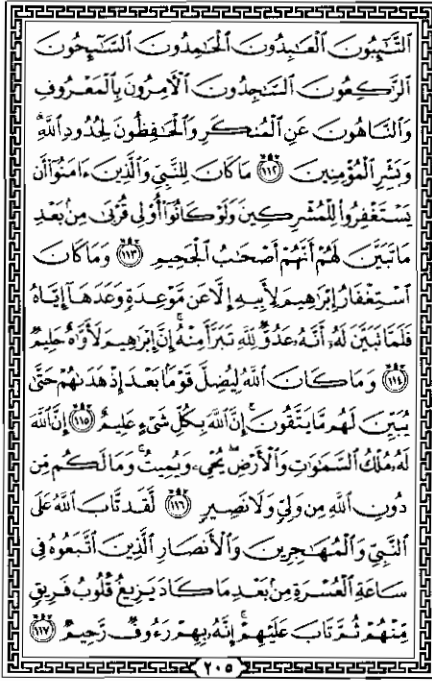 ٱلتَّـٰٓئِبُونَ ٱلْعَـٰبِدُونَ ٱلْحَـٰمِدُونَ ٱلسَّـٰٓئِحُونَ
ٱلرَّٰكِعُونَ ٱلسَّـٰجِدُونَ ٱلْـَٔامِرُونَ بِٱلْمَعْرُوفِ
وَٱلنَّاهُونَ عَنِ ٱلْمُنكَرِ وَٱلْحَـٰفِظُونَ لِحُدُودِ ٱللَّهِۗ
وَبَشِّرِ ٱلْمُؤْمِنِينَ ﴿١١٢﴾ مَا كَانَ لِلنَّبِىِّ وَٱلَّذِينَ ءَامَنُوٓا۟ أَن
يَسْتَغْفِرُوا۟ لِلْمُشْرِكِينَ وَلَوْ كَانُوٓا۟ أُو۟لِى قُرْبَىٰ مِنۢ بَعْدِ
مَا تَبَيَّنَ لَهُمْ أَنَّهُمْ أَصْحَـٰبُ ٱلْجَحِيمِ ﴿١١٣﴾ وَمَا كَانَ
ٱسْتِغْفَارُ إِبْرَٰهِيمَ لِأَبِيهِ إِلَّا عَن مَّوْعِدَةٍ وَعَدَهَآ إِيَّاهُ
فَلَمَّا تَبَيَّنَ لَهُۥٓ أَنَّهُۥ عَدُوٌّ لِّلَّهِ تَبَرَّأَ مِنْهُۚ إِنَّ إِبْرَٰهِيمَ لَأَوَّٰهٌ حَلِيمٌ
﴿١١٤﴾ وَمَا كَانَ ٱللَّهُ لِيُضِلَّ قَوْمًۢا بَعْدَ إِذْ هَدَىٰهُمْ حَتَّىٰ
يُبَيِّنَ لَهُم مَّا يَتَّقُونَۚ إِنَّ ٱللَّهَ بِكُلِّ شَىْءٍ عَلِيمٌ ﴿١١٥﴾ إِنَّ ٱللَّهَ
لَهُۥ مُلْكُ ٱلسَّمَـٰوَٰتِ وَٱلْأَرْضِۖ يُحْىِۦ وَيُمِيتُۚ وَمَا لَكُم مِّن
دُونِ ٱللَّهِ مِن وَلِىٍّ وَلَا نَصِيرٍ ﴿١١٦﴾ لَّقَد تَّابَ ٱللَّهُ عَلَى
ٱلنَّبِىِّ وَٱلْمُهَـٰجِرِينَ وَٱلْأَنصَارِ ٱلَّذِينَ ٱتَّبَعُوهُ فِى
سَاعَةِ ٱلْعُسْرَةِ مِنۢ بَعْدِ مَا كَادَ يَزِيغُ قُلُوبُ فَرِيقٍ
مِّنْهُمْ ثُمَّ تَابَ عَلَيْهِمْۚ إِنَّهُۥ بِهِمْ رَءُوفٌ رَّحِيمٌ ﴿١١٧﴾
٢٠٥